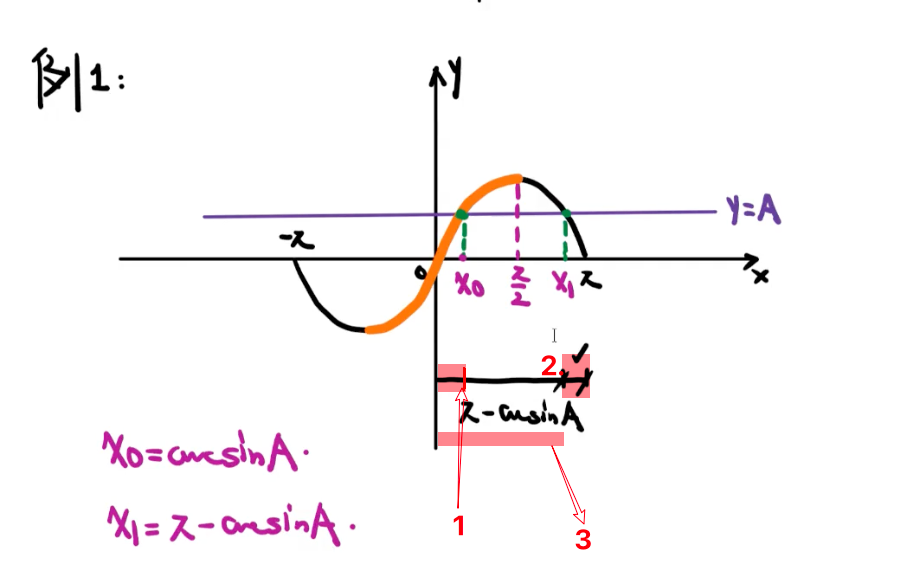 例1:
y
y=A
-π
0
x₀
π/2
x₁
π
x
2.
✓
π-arcsinA
x₀=arcsinA.
x₁=π-arcsinA.
1
3